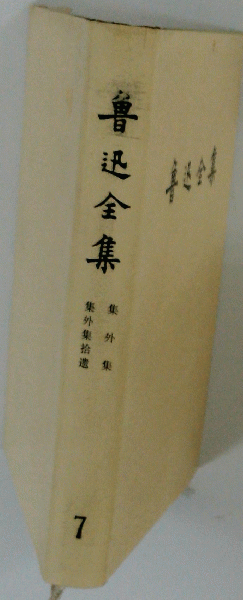 魯迅全集
集外集
集外集拾遺
7
魯迅全集